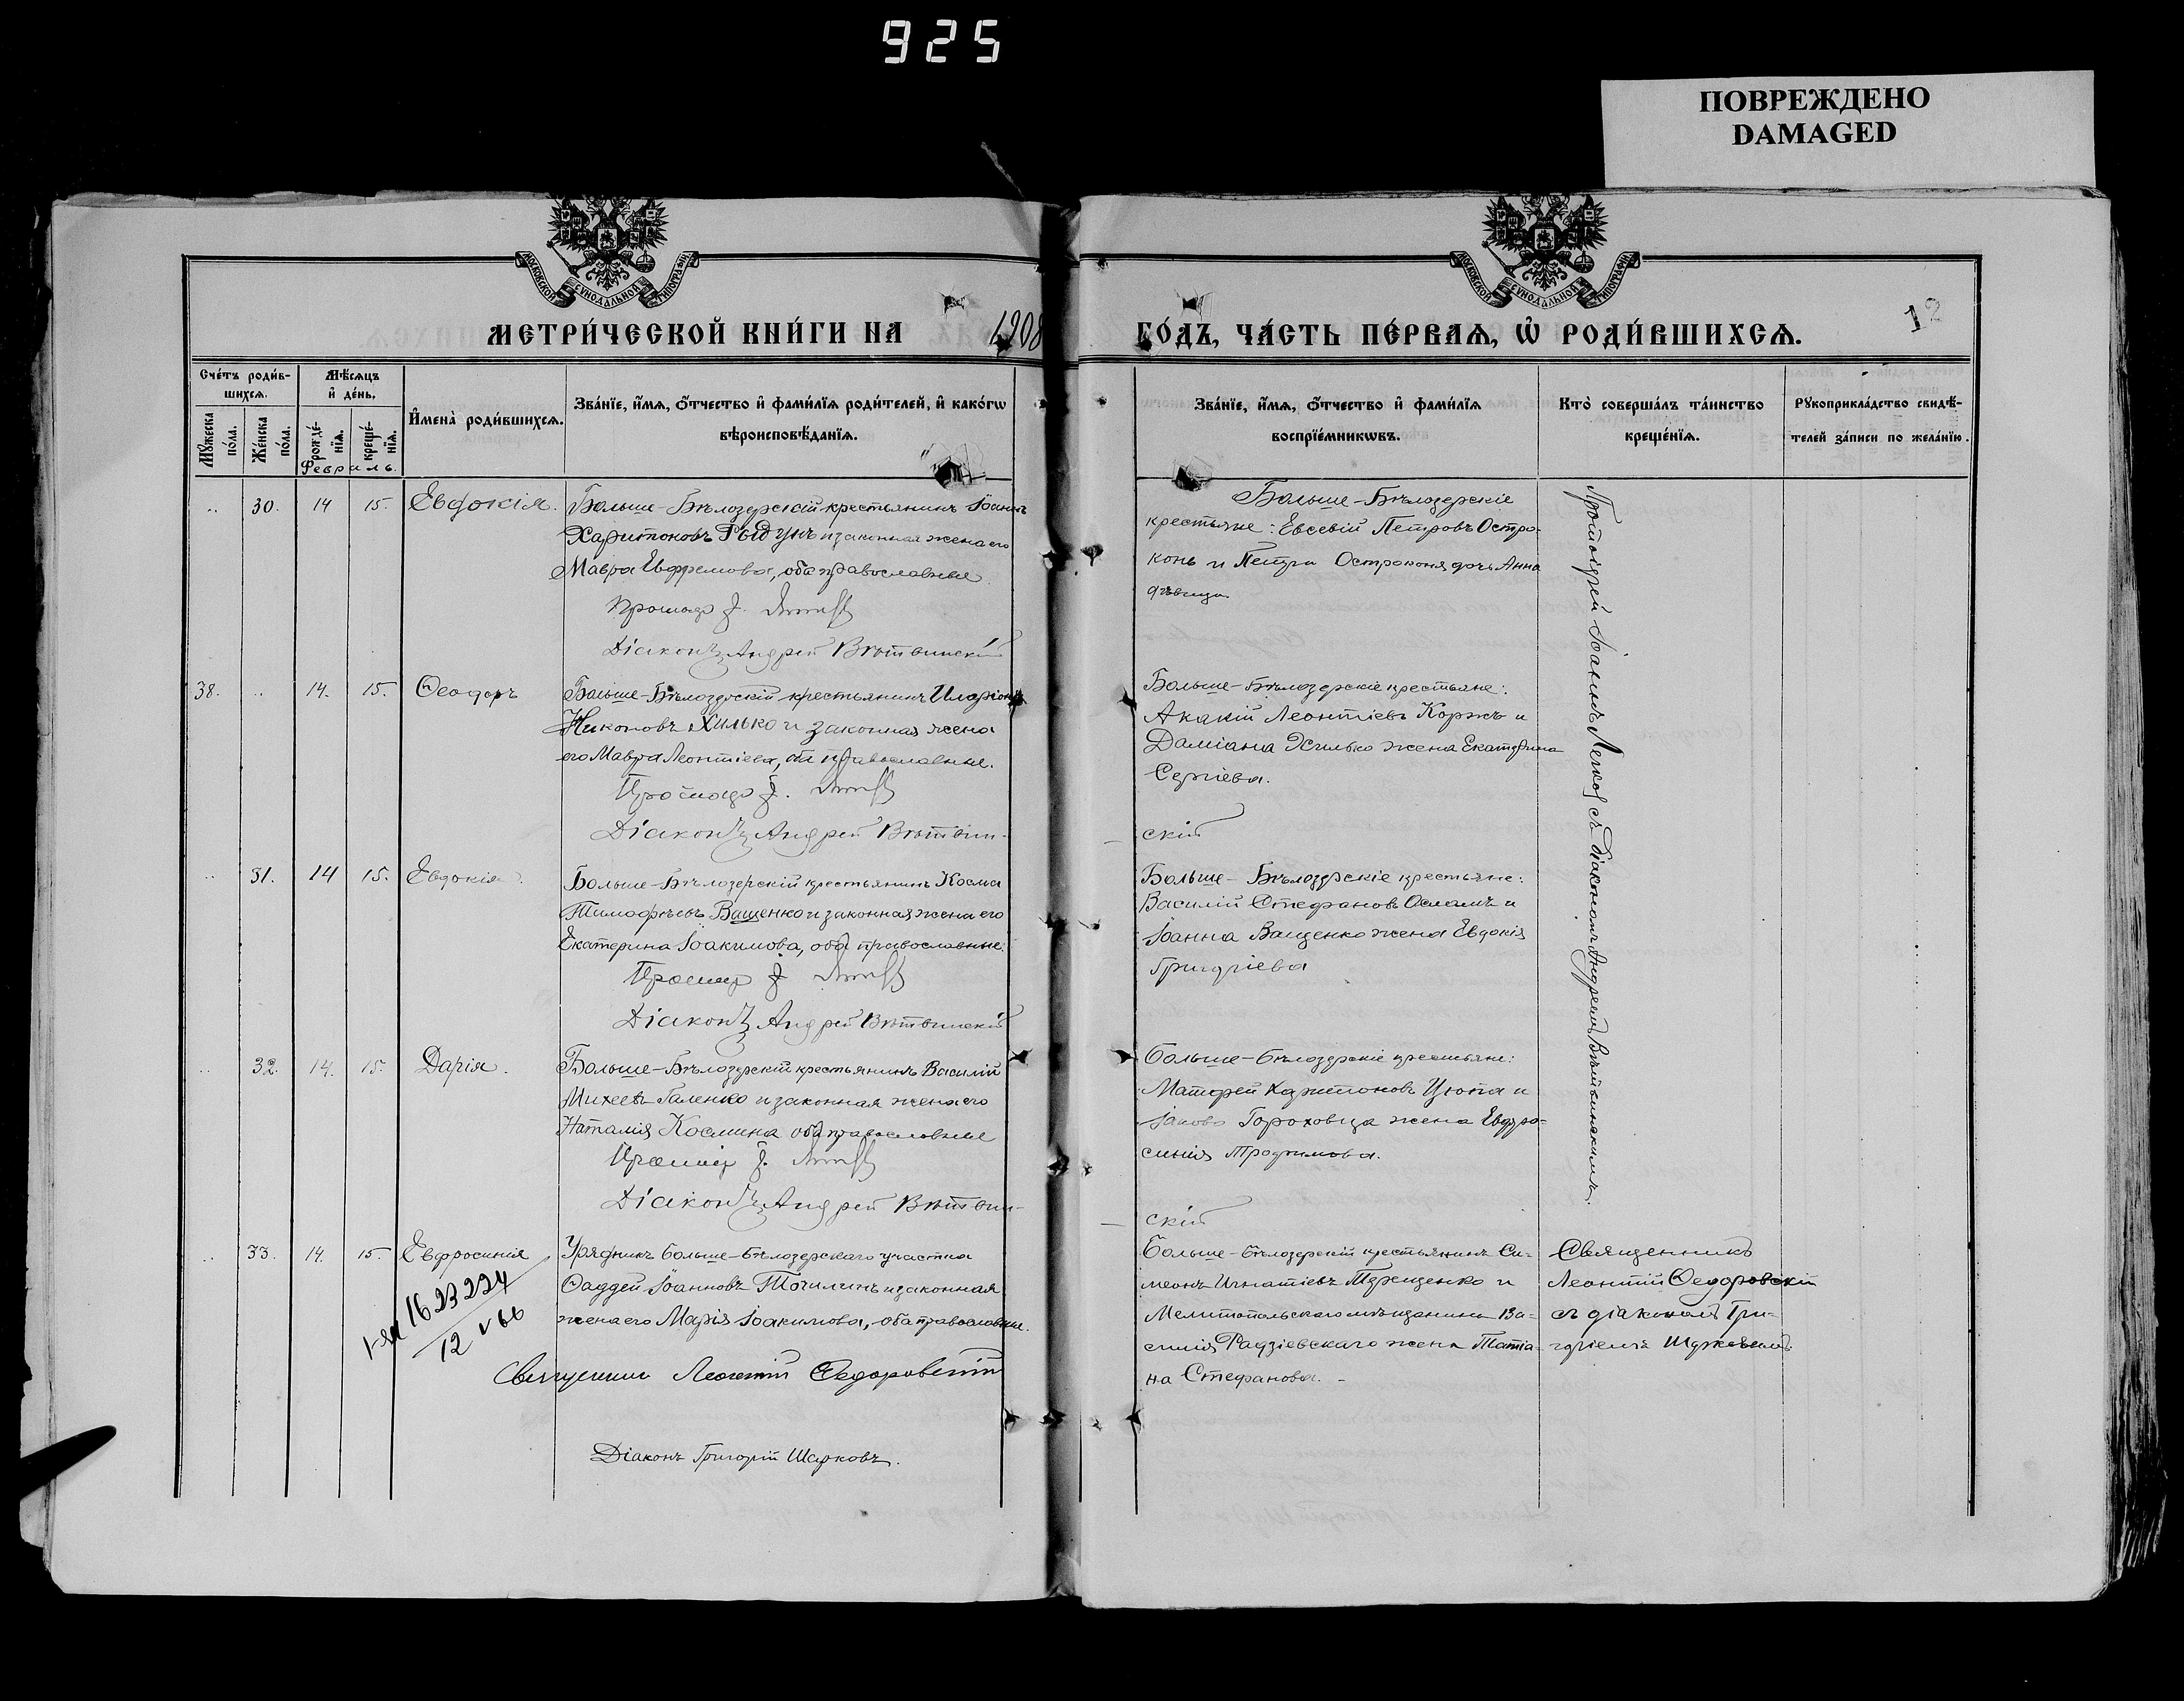 925
ПОВРЕЖДЕНО
DAMAGED
МОСКОВСКОЙ СУНОДАЛЬНОЙ ТИПОГРАФІИ
МОСКОВСКОЙ СУНОДАЛЬНОЙ ТИПОГРАФІИ
МЕТРИ́ЧЕСКОЙ КНИ́ГИ НА 1908
ГО́ДЪ, ЧА́СТЬ ПЕ́РВАѦ, Ѡ҆ РОДИ́ВШИХСѦ.
12
Сче́тъ роди́в-
шихсѧ.
Мѣ́сѧцъ
и҆ де́нь.
И҆мена̀ роди́вшихсѧ.
Зва́нїе, и҆́мѧ, ѻ҆́тчество и҆ фами́лїѧ роди́телей, и҆ како́гѡ
вѣроисповѣ́данїѧ.
Мꙋ́жеска
по́ла.
Же́нска
по́ла.
рожде́-
нїѧ.
креще́-
нїѧ.
Февраль.
Зва́нїе, и҆́мѧ, ѻ҆́тчество и҆ фами́лїѧ
воспрїе́мникѡвъ.
Кто̀ соверша́лъ та́инство
креще́нїѧ.
Рꙋкоприкла́дство свидѣ́-
телей за́писи по жела́нїю.
30. 14 15. Евдокія.
Больше-Бѣлозерскій крестьянинъ Іоаннъ
Харитоновъ Рыдунъ и законная жена его
Мавра Ефремова, оба православные
Діаконъ Андрей Вѣтвинскій
Больше-Бѣлозерскіе
крестьяне: Евсевій Петровъ Остро-
конь и Петра Остроконя дочь Анна
дѣвица
Протоіерей Іоаннъ съ діакономъ Андреемъ Вѣтвинскимъ.
38. 14. 15. Ѳеодоръ
Больше-Бѣлозерскій крестьянинъ Иларіонъ
Никоновъ Хилько и законная жена
его Мавра Леонтіева, оба православные.
Діаконъ Андрей Вѣтвин-
Больше-Бѣлозерскіе крестьяне:
Акакій Леонтіевъ Коржъ и
Даміана Хилько жена Екатерина
Сергіева.
скій
31. 14 15. Евдокія.
Больше-Бѣлозерскій крестьянинъ Косма
Тимофѣевъ Ващенко и законная жена его
Екатерина Іоакимова, оба православные.
Діаконъ Андрей Вѣтвинскій
Больше-Бѣлозерскіе крестьяне:
Василій Стефановъ и
Іоанна Ващенко жена Евдокія
Григоріева
32. 14. 15. Дарія.
Больше-Бѣлозерскій крестьянинъ Василій
Михеевъ Галенко и законная жена его
Наталія Космина оба православные
Діаконъ Андрей Вѣтвин-
Больше-Бѣлозерскіе крестьяне:
Матфей Харитоновъ Цюпа и
Іакова Гороховца жена Евфро-
синія Трофимова.
скій
33. 14. 15. Евфросинія
1-ЯР 1623224
12 V 66
Урядникъ Больше-Бѣлозерскаго участка
Ѳаддей Іоанновъ Точилинъ и законная
жена его Марія Іоакимова, оба православные.
Священникъ Леонтій Ѳедоровскій
Діаконъ Григорій Шарковъ.
Больше-Бѣлозерскій крестьянинъ Си-
меонъ Игнатіевъ Терещенко и
Мелитопольскаго мѣщанина Ва-
силія Радзіевскаго жена Татіа-
на Стефанова.
Священникъ
Леонтій Ѳедоровскій
съ діакономъ Гри-
горіемъ Шарковымъ.